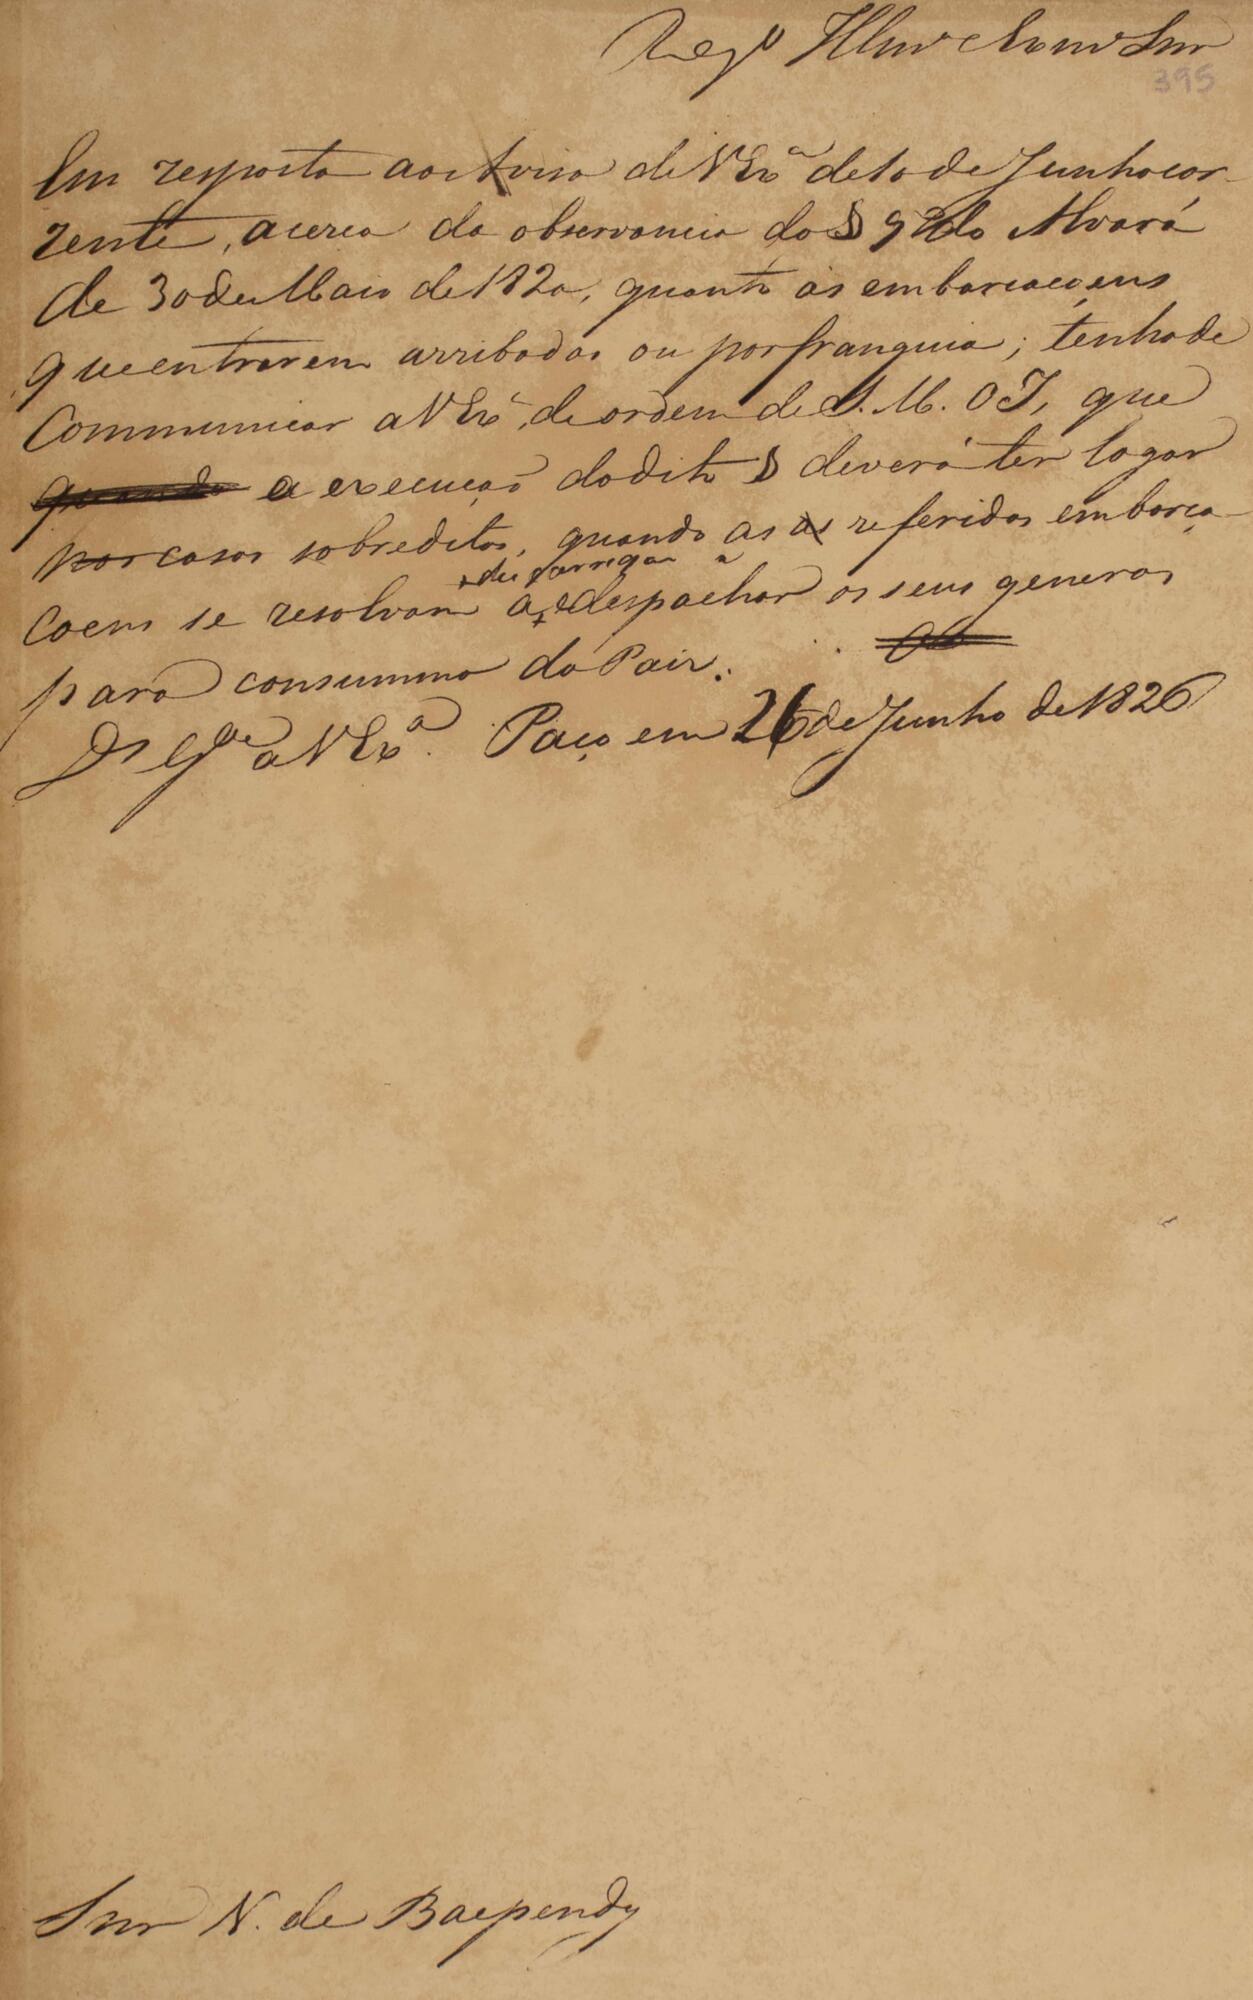 Reg.º Illmo e Exmo Snr
395
Em resposta ao Aviso de V Exª de 10 de Junho cor-
rente, acerca da observancia do § 9º do Alvará
de 30 de Maio de 1820, quanto ás embarcaçoens
que entrarem arribadas ou por franquia; tenho de
Communicar a V Exª, de ordem de S. M. O I, que
quando a execução do dito § deverá ter logar
por casos sobreditos, quando as as referidas embarca-
+ descarregar
çoens se resolvam a + e despachar os seus generos
para consummo do Paiz.
Ds Gde a V Exª. Paço em 26 de Junho de 1826
Snr V. de Baependy